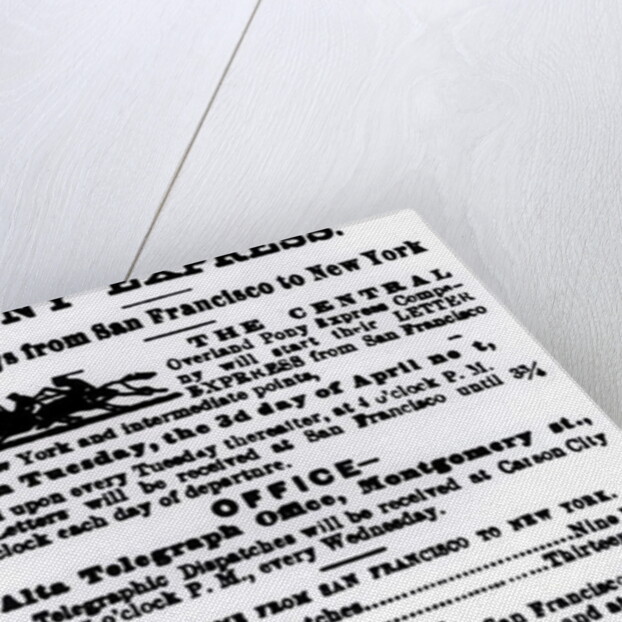 NY EXPRESS.
ys from San Francisco to New York
THE CENTRAL
Overland Pony Express Compa-
ny will start their LETTER
EXPRESS from San Francisco
York and intermediate points,
Tuesday, the 3d day of April ne t,
upon every Tuesday thereafter, at 4 o'clock P. M.
Letters will be received at San Francisco until 3¾
clock each day of departure.
OFFICE—
Alta Telegraph Office, Montgomery st.,
Telegraphic Dispatches will be received at Carson City
o'clock P. M., every Wednesday.
FROM SAN FRANCISCO TO NEW YORK.
tches..............................Nine
..............................Thirteen
San Francisco
and at